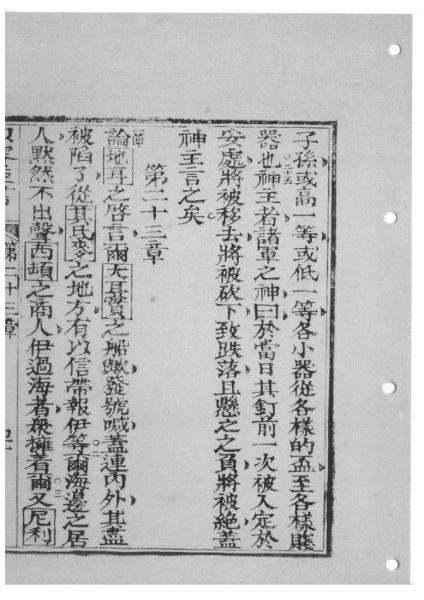 子孫或高一等或低一等各小器從各樣的盃至各樣賤
器也○二十五神主者諸軍之神曰於當日其釘前一次被入定於
妥處將被移去將被砍下致跌落且懸之之負將被絶蓋
神主言之矣
第二十三章
節論地耳之啓言爾大耳實之船歟發號喊蓋連內外其盡
被陷了從其氏麥之地方有以信帶報伊等○二爾海邊之居
人默然不出聲西頓之商人伊過海者衆擁着爾○三又尼利
第二十三章